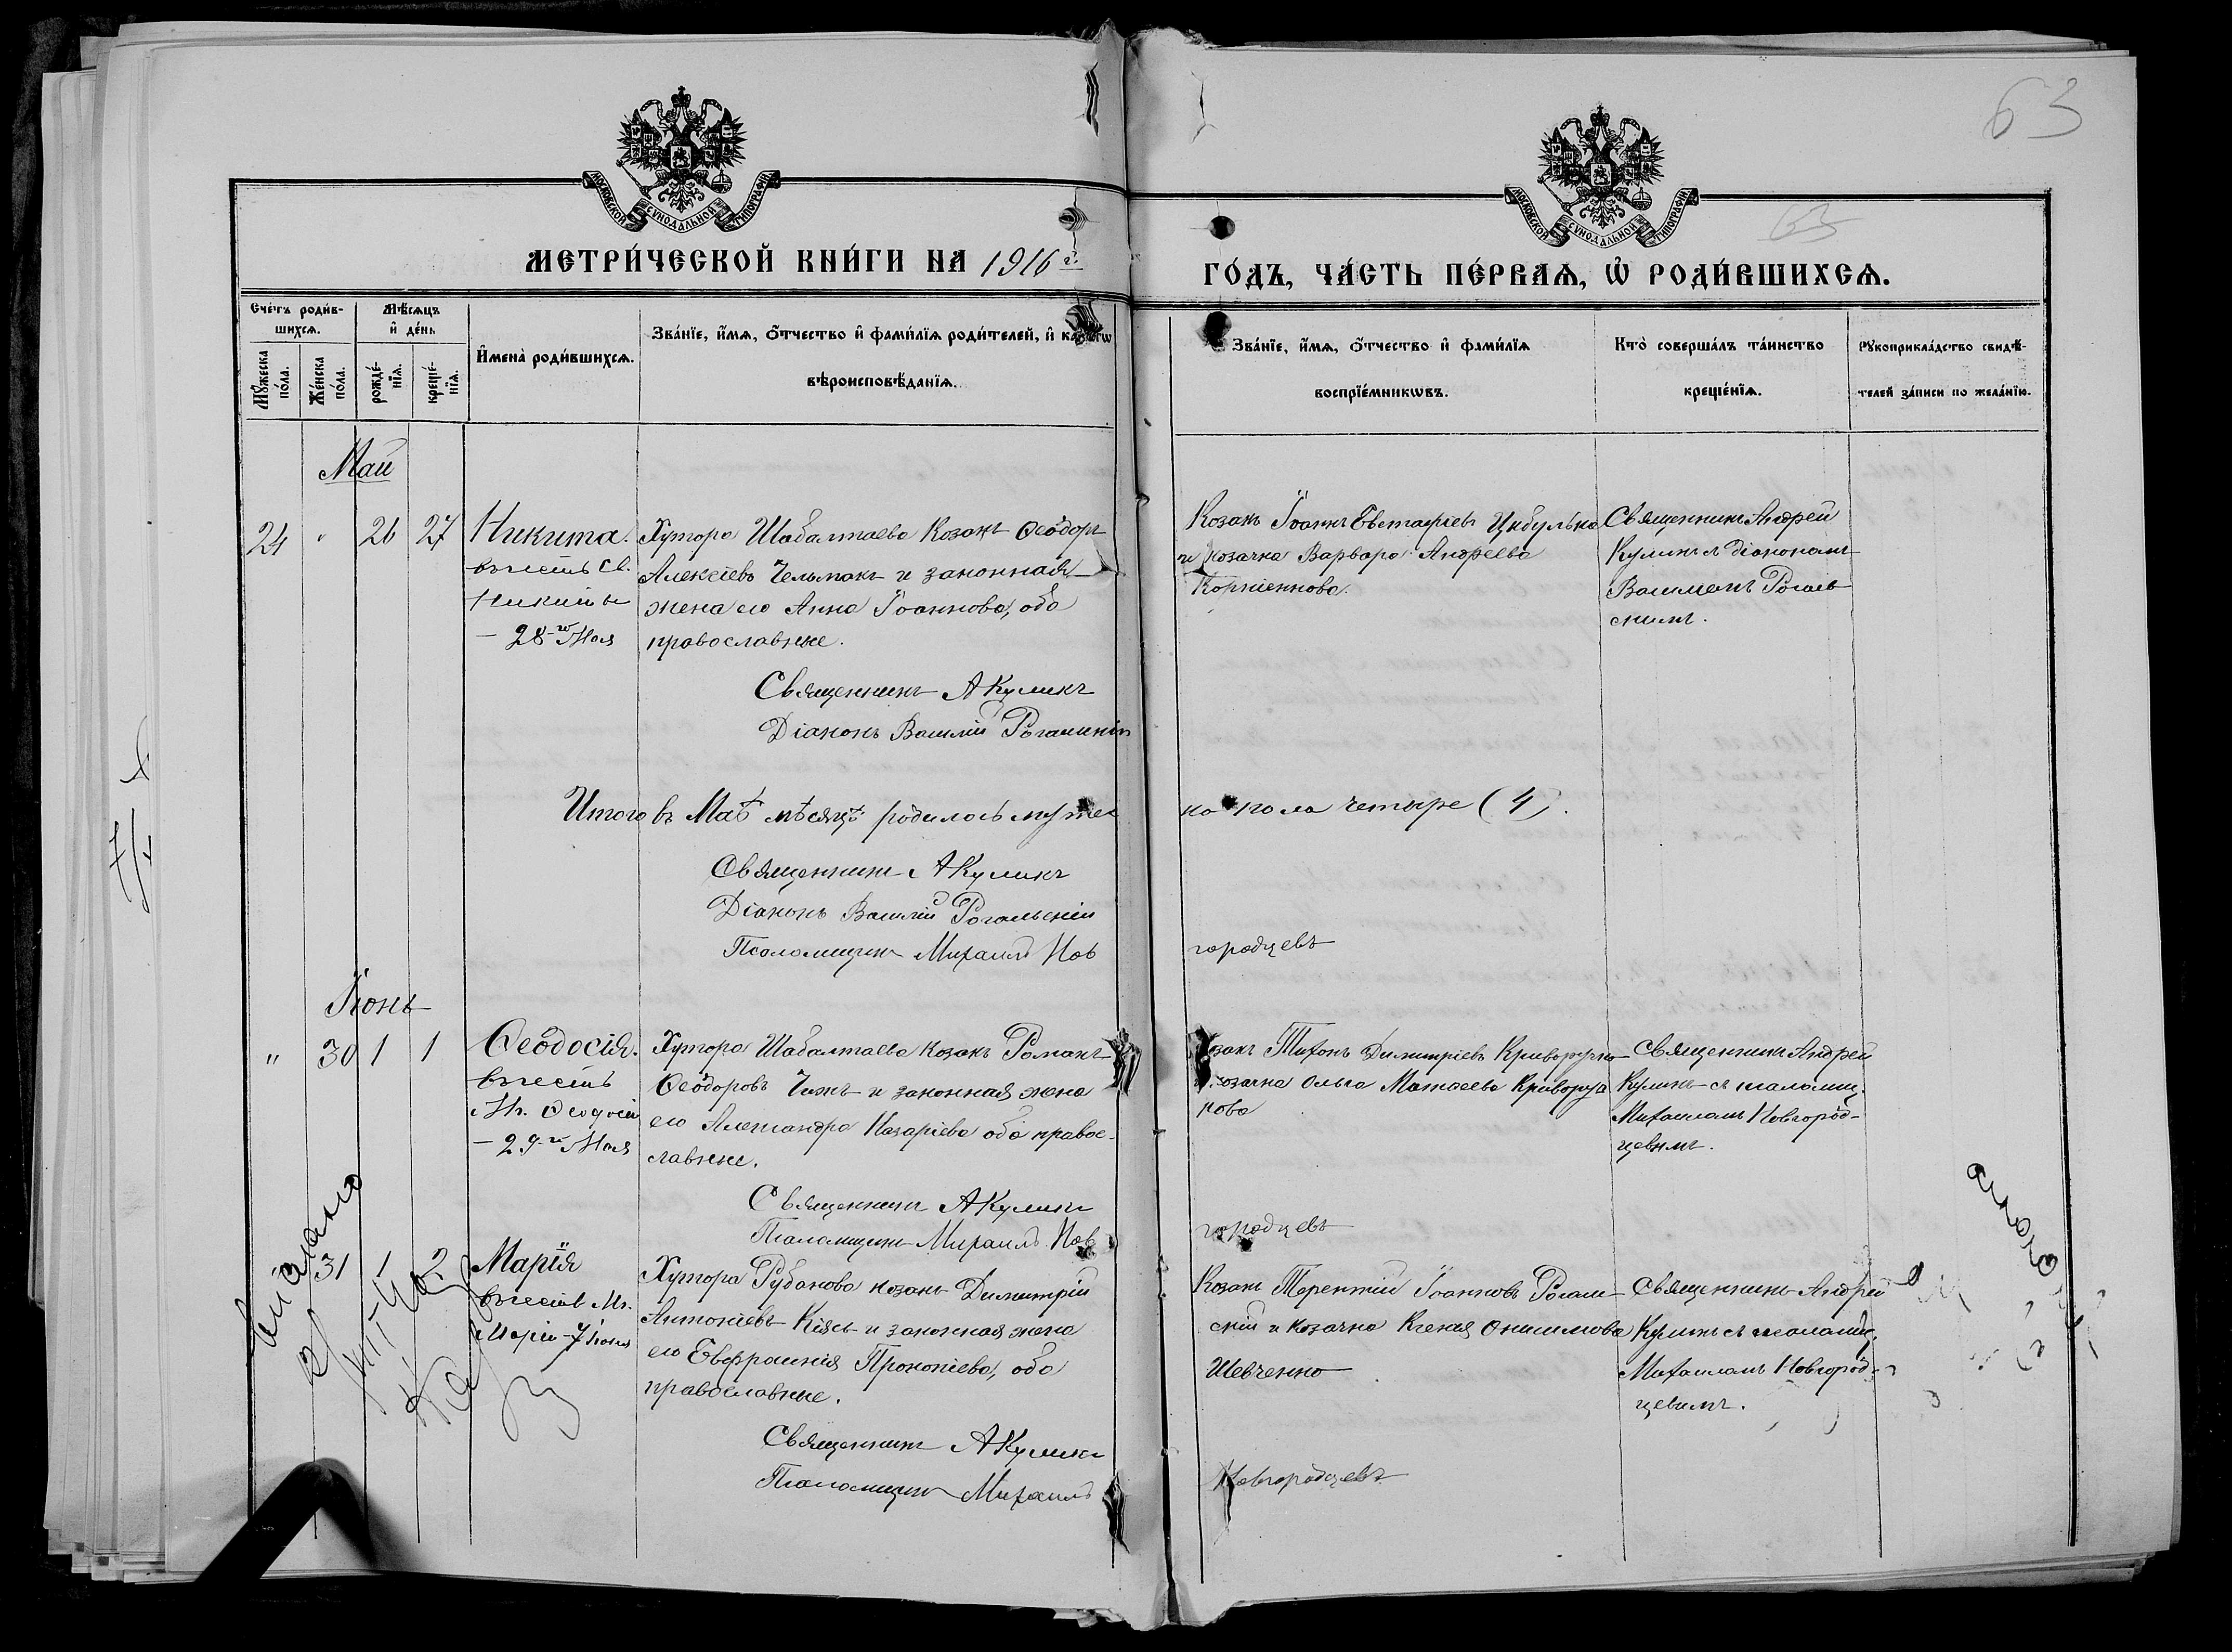 63
63
МОСКОВСКОЙ СѴНОДАЛЬНОЙ ТИПОГРАФІИ
МОСКОВСКОЙ СѴНОДАЛЬНОЙ ТИПОГРАФІИ
МЕТРИ́ЧЕСКОЙ КНИ́ГИ НА 1916 г.
ГО́ДЪ, ЧА́СТЬ ПЕ́РВАѦ, Ѡ҆ РОДИ́ВШИХСѦ.
Сче́тъ роди́в-
шихсѧ.
Мꙋ́жеска по́ла.
Же́нска по́ла.
Мѣ́сѧцъ
и҆ де́нь
рожде́-
нїѧ.
креще́-
нїѧ.
И҆мена̀ роди́вшихсѧ.
Зва́нїе, и҆́мѧ, ѻ҆́тчество и҆ фами́лїѧ роди́телей, и҆ како́гѡ
вѣроисповѣ́данїѧ.
Зва́нїе, и҆́мѧ, ѻ҆́тчество и҆ фами́лїѧ
воспрїе́мникѡвъ.
Кто̀ соверша́лъ та́инство
креще́нїѧ.
Рꙋкоприкла́дство свидѣ́-
телей за́писи по жела́нїю.
Май
24 " 26 27
Никита.
въ честь св.
Никиты
— 28-го Мая
Хутора Шабалтаева Козакъ Ѳеодоръ
Алексіевъ Чельмакъ и законная
жена его Анна Іоаннова, оба
православные.
Священникъ А Куликъ
Діаконъ Василій Рогальскій
Козакъ Іоаннъ Евстафіевъ Цибулько
и козачка Варвара Андреева
Корніенкова.
Священникъ Андрей
Куликъ съ діакономъ
Василіемъ Рогаль
скимъ.
Итого въ Маѣ мѣсяцѣ родилось мужес
ка пола четыре (4).
Священникъ А Куликъ
Діаконъ Василій Рогальскій
Псаломщикъ Михаилъ Нов
городцевъ
Іюнь
" 30 1 1
Ѳеодосія.
въ честь
Мч. Ѳеодосіи
— 29-го Мая
Хутора Шабалтаева козакъ Романъ
Ѳеодоровъ Чижъ и законная жена
его Александра Назаріева оба правос-
лавные.
Священникъ А Куликъ
Псаломщикъ Михаилъ Нов
городцевъ
козакъ Тихонъ Димитріевъ Криворучко
и козачка Ольга Матвеева Криворуч
кова
Священникъ Андрей
Куликъ съ псаломщ.
Михаиломъ Новгород-
цевымъ.
31 1 2
Марія
въ честь Мч.
Маріи — 7 Іюня
Хутора Рубанова козакъ Димитрій
Антоніевъ Кіясъ и законная жена
его Евфросинія Прокопіева, оба
православные.
Священникъ А Куликъ
Псаломщикъ Михаилъ
Новгородцевъ
Козакъ Терентій Іоанновъ Рогаль
скій и козачка Ксенія Онисимова
Шевченко
Священникъ Андрей
Куликъ съ псаломщ.
Михаиломъ Новгород-
цевымъ.